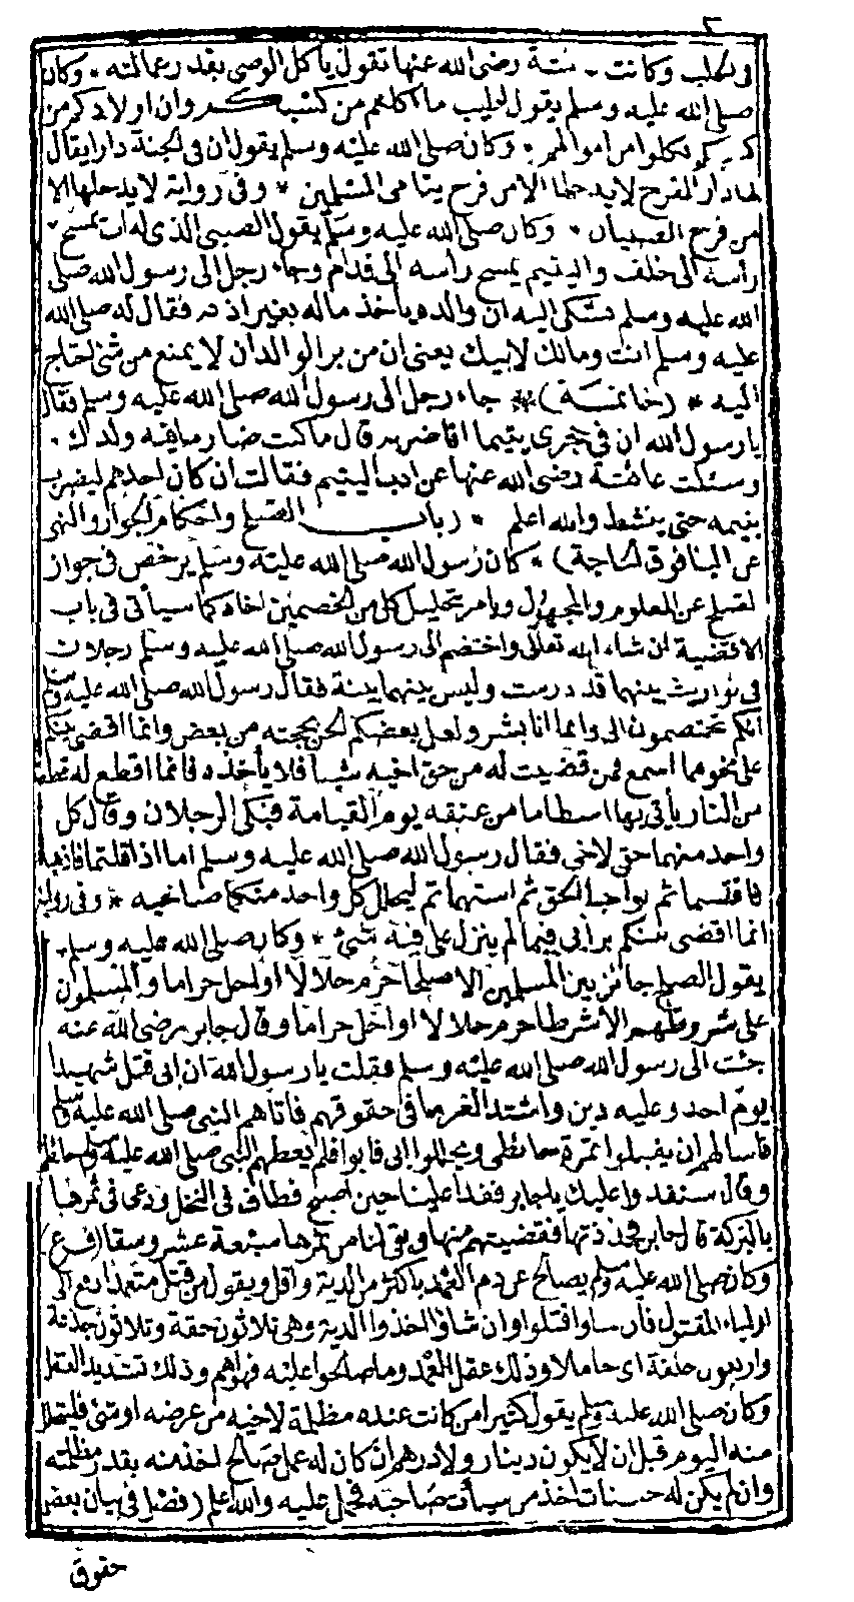 ٢
وكانت رضى الله عنها تقول يأكل الوصى بقدر عمالته * وكان
صلى الله عليه وسلم يقول اطيب ما اكلتم من كسبكم وان اولادكم من
كسبكم فكلوا من اموالهم * وكان صلى الله عليه وسلم يقول ان فى الجنة دارا يقال
لها دار الفرح لا يدخلها الا من فرح يتامى المسلمين * وفى رواية لا يدخلها الا
من فرح الصبيان * وكان صلى الله عليه وسلم يقول الصبى الذى له اب تمسح
رأسه الى خلف واليتيم يمسح رأسه الى قدام وجاء رجل الى رسول الله صلى
الله عليه وسلم فشكى اليه ان والده يأخذ ماله بغير اذنه فقال له صلى الله
عليه وسلم انت ومالك لابيك يعنى ان من بر الوالد ان لا يمنع من شئ احتاج
اليه * (خاتمة) * جاء رجل الى رسول الله صلى الله عليه وسلم فقال
يا رسول الله ان فى حجرى يتيما افاضربه قال ما كنت ضاربا فيه ولدك *
وسئلت عائشة رضى الله عنها عن ادب اليتيم فقالت ان كان احدهم ليضرب
يتيمه حتى ينشط والله اعلم * (باب الصلح واحكام الجوار والنهى
عن البنا فوق الحاجة) * كان رسول الله صلى الله عليه وسلم يرخص فى جواز
الصلح عن المعلوم والمجهول ويامر بتحليل كل من الخصمين اخاه كما سيأتى فى باب
الاقضية ان شاء الله تعالى واختصم الى رسول الله صلى الله عليه وسلم رجلان
فى مواريث بينهما قد درست وليس بينهما بينة فقال رسول الله صلى الله عليه وسلم
انكم تختصمون الى وانما انا بشر ولعل بعضكم الحن بحجته من بعض وانما اقضى بينكم
على نحو مما اسمع فمن قضيت له من حق اخيه شيأ فلا يأخذه فانما اقطع له قطعة
من النار يأتى بها اسطاما من عنقه يوم القيامة فبكى الرجلان وقال كل
واحد منهما حقى لاخى فقال رسول الله صلى الله عليه وسلم اما اذا قلتما فاذهبا
فاقتسما ثم توخيا الحق ثم استهما ثم ليحلل كل واحد منكما صاحبه * وفى رواية
انما اقضى بينكم برأيى فيما لم ينزل على فيه شئ * وكان صلى الله عليه وسلم
يقول الصلح جائز بين المسلمين الا صلحا حرم حلالا او احل حراما والمسلمون
على شروطهم الا شرطا حرم حلالا او احل حراما وقال جابر رضى الله عنه
جئت الى رسول الله صلى الله عليه وسلم فقلت يا رسول الله ان ابى قتل شهيدا
يوم احد وعليه دين واشتد الغرما فى حقوقهم فاتاهم النبى صلى الله عليه وسلم
فاسالهم ان يقبلوا تمرة حائطى ويحللوا ابى فابوا فلم يعطهم النبى صلى الله عليه وسلم حائطى
وقال سنغدوا عليك يا جابر فغدا علينا حين اصبح فطاف فى النخل ودعى فى ثمرها
بالبركة قال جابر فجذذتها فقضيتهم منها وبقى لنا من تمرها سبعة عشر وسقا (فرع)
وكان صلى الله عليه وسلم يصالح عن دم العمد باكثر من الدية واقل ويقول من قتل متعمدا دفع الى
اولياء المقتول فان شاوا قتلوا وان شاؤا اخذوا الدية وهى ثلاثون حقة وثلاثون جذعة
واربعون خلفة اى حاملا وذلك عقل العمد وما صالحوا عليه فهو لهم وذلك تشديد العقل
وكان صلى الله عليه وسلم يقول كثيرا من كانت عنده مظلمة لاخيه من عرضه او شئ فليتحلل
منه اليوم قبل ان لا يكون دينار ولا درهم ان كان له عمل صالح اخذ منه بقدر مظلمته
وان لم يكن له حسنات اخذ من سيأت صاحبه فحمل عليه والله اعلم (فصل فى بيان بعض
حقوق